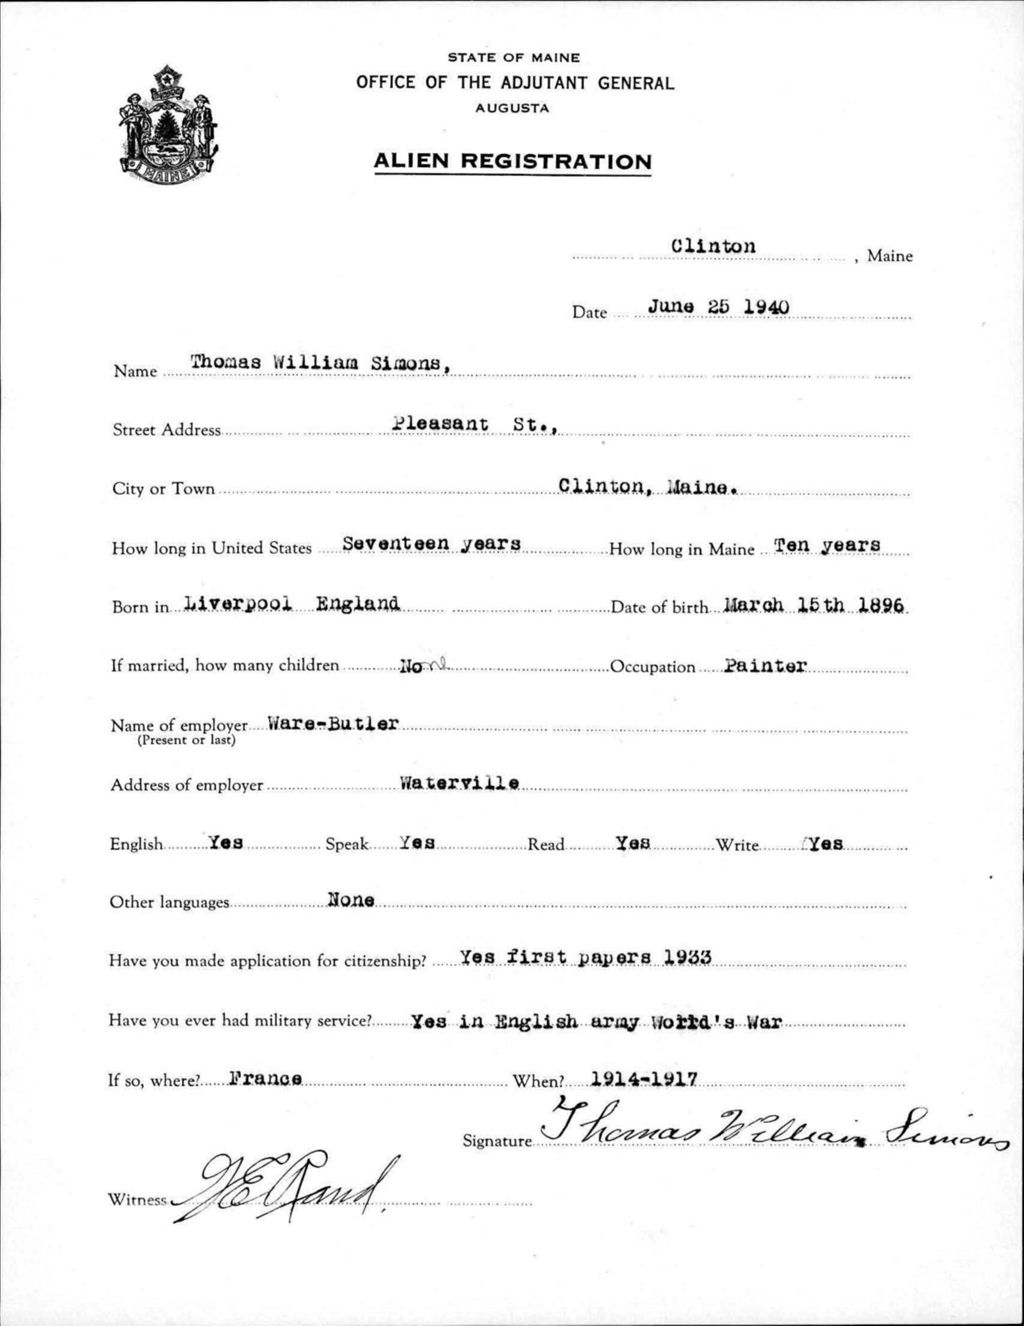 STATE OF MAINE
OFFICE OF THE ADJUTANT GENERAL
AUGUSTA
ALIEN REGISTRATION
MAINE
Clinton, Maine
Date June 25 1940
Name Thomas William Simons,
Street Address Pleasant St.,
City or Town Clinton, Maine.
How long in United States Seventeen years How long in Maine Ten years
Born in Liverpool England Date of birth March 15th 1896
If married, how many children None Occupation Painter
Name of employer Ware-Butler
(Present or last)
Address of employer Waterville
English Yes Speak Yes Read Yes Write Yes
Other languages None
Have you made application for citizenship? Yes first papers 1933
Have you ever had military service? Yes in English army World's War
If so, where? France When? 1914-1917
Signature Thomas William Simons
Witness